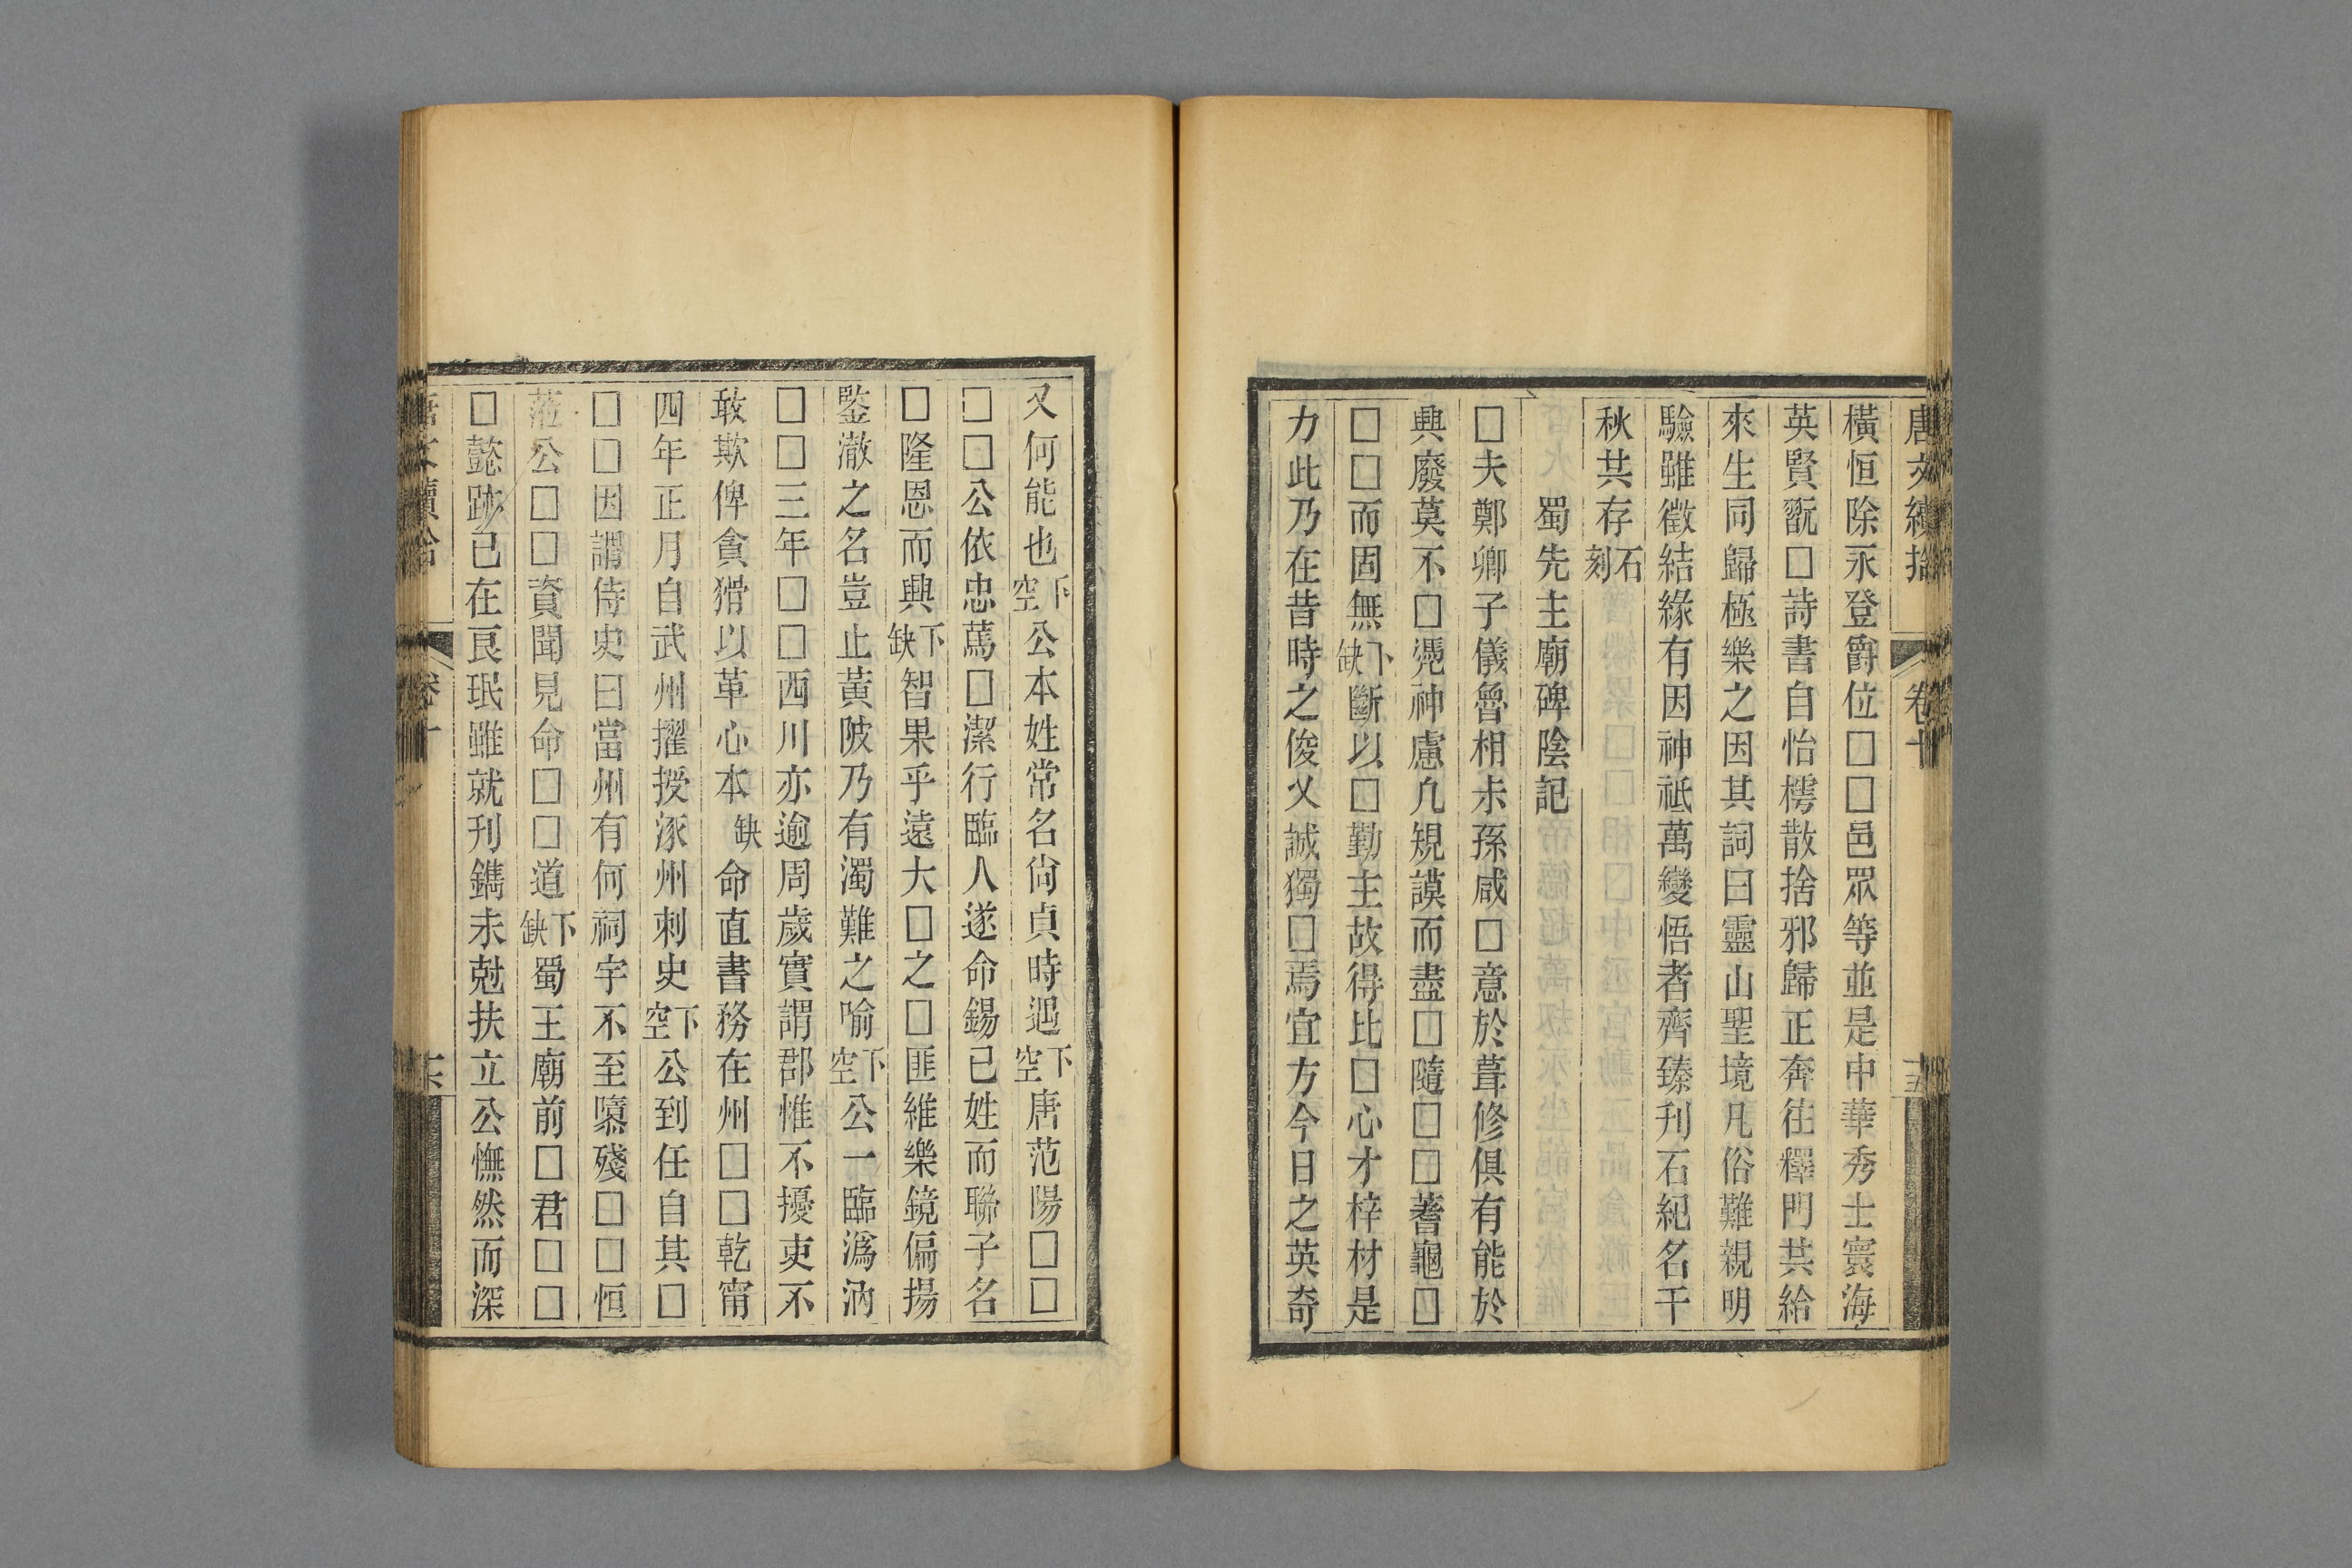 唐文續拾 卷十 十五
橫恒除永登爵位□□邑眾等並是中華秀士寰海
英賢翫□詩書自怡樗散捨邪歸正奔往釋門共給
來生同歸極樂之因其詞曰靈山聖境凡俗難親明
驗雖徵結緣有因神祗萬變悟者齊臻刊石紀名千
秋共存石刻
蜀先主廟碑陰記
□夫鄭卿子儀魯相未孫咸□意於葺修俱有能於
興廢莫不□凴神慮凢規謨而盡□隨□□蓍龜□
□□而固無下缺斷以□勤主故得比□心才梓材是
力此乃在昔時之俊乂誠獨□焉宜方今日之英奇
又何能也下空公本姓常名尙貞時遇下空唐范陽□□
□□公依忠蔿□潔行臨人遂命錫已姓而聯子名
□隆恩而興下缺智果乎遠大□之□匪維樂鏡偏揚
鑒澈之名豈止黃陂乃有濁難之喻下空公一臨溈汭
□□三年□□西川亦逾周歲實謂郡惟不擾吏不
敢欺俾貪猾以革心本缺命直書務在州□□乾甯
四年正月自武州擢授涿州刺史下空公到任自其□
□□因謂侍史曰當州有何祠宇不至隳殘□□恒
蒞公□□資聞見命□□道下缺蜀王廟前□君□□
□懿跡已在㫐珉雖就刊鐫未尅扶立公憮然而深
唐文續拾 卷十 十六